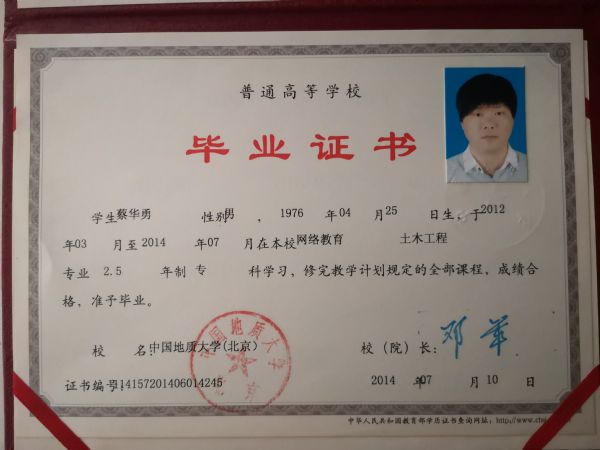 普通高等学校
毕业证书
学生 蔡华勇 性别 男 ，1976 年 04 月 25 日生，于 2012
年 03 月至 2014 年 07 月在本校 网络教育 土木工程
专业 2.5 年制 专 科学习，修完教学计划规定的全部课程，成绩合
格，准予毕业。
校 名：中国地质大学(北京) 校（院）长：邓军
证书编号：114157201406014245 2014 年 07 月 10 日
中华人民共和国教育部学历证书查询网址：http://www.chsi